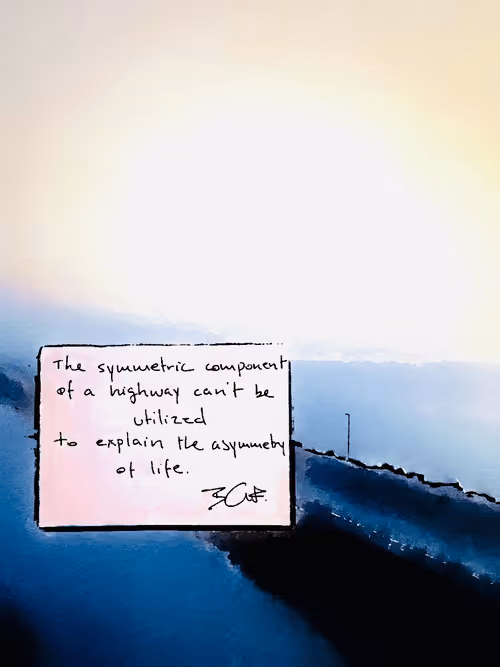 The symmetric component
of a highway can't be
utilized
to explain the asymmetry
of life.